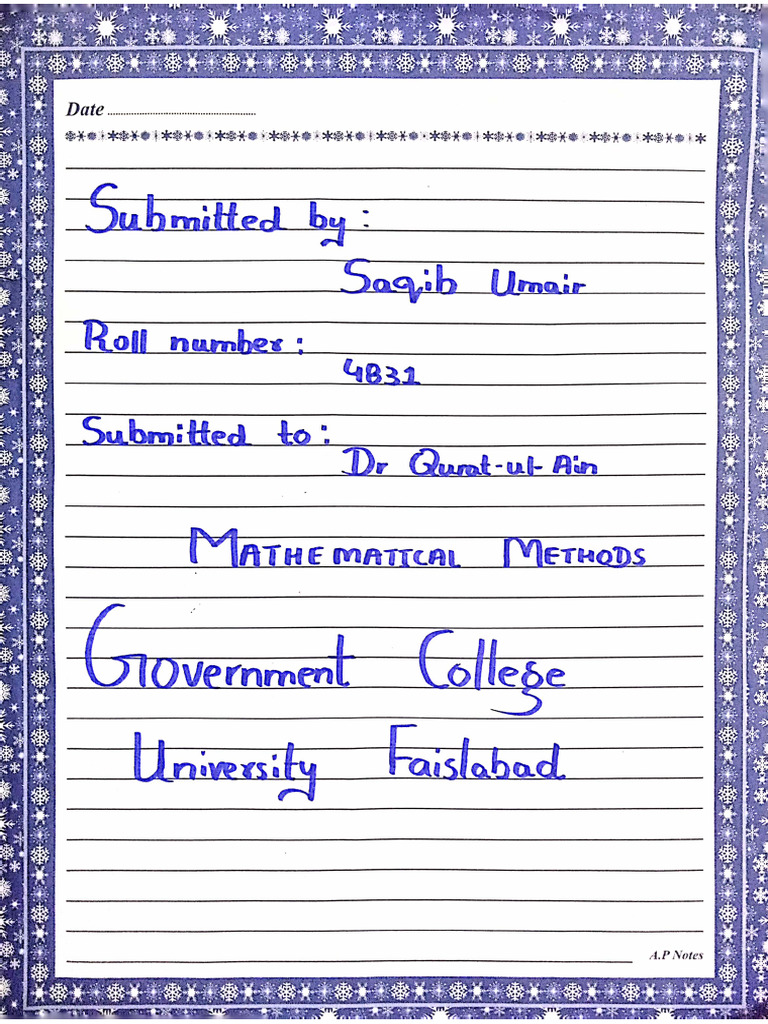 Date
Submitted by :
Saqib Umair
Roll number :
4831
Submitted to :
Dr Qurat-ul-Ain
MATHEMATICAL METHODS
Government College
University Faislabad
A.P Notes